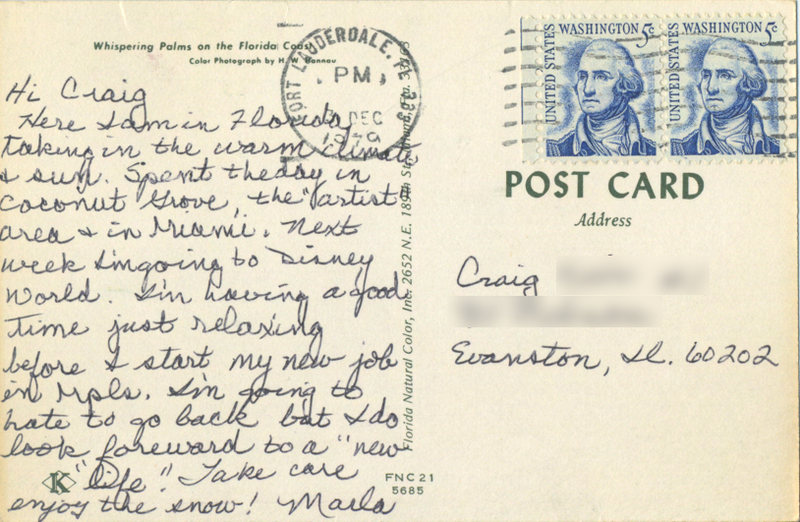 Whispering Palms on the Florida Coast
Color Photograph by H. W. Hannau
Hi Craig
Here I am in Florida
taking in the warm climate
& sun. Spent the day in
Coconut Grove, the "artist"
area & in Miami. Next
week I'm going to Disney
World. I'm having a good
time just relaxing
before I start my new job
in Mpls. I'm going to
hate to go back but I do
look foreward to a "new
"life". Take care
enjoy the snow! Marla
K
FNC21
5685
Florida Natural Color, Inc. 2652 N.E. 189th St.
FORT LAUDERDALE, FL 333
PM
DEC
UNITED STATES
WASHINGTON 5¢
UNITED STATES
WASHINGTON 5¢
POST CARD
Address
Craig
Evanston, Il. 60202